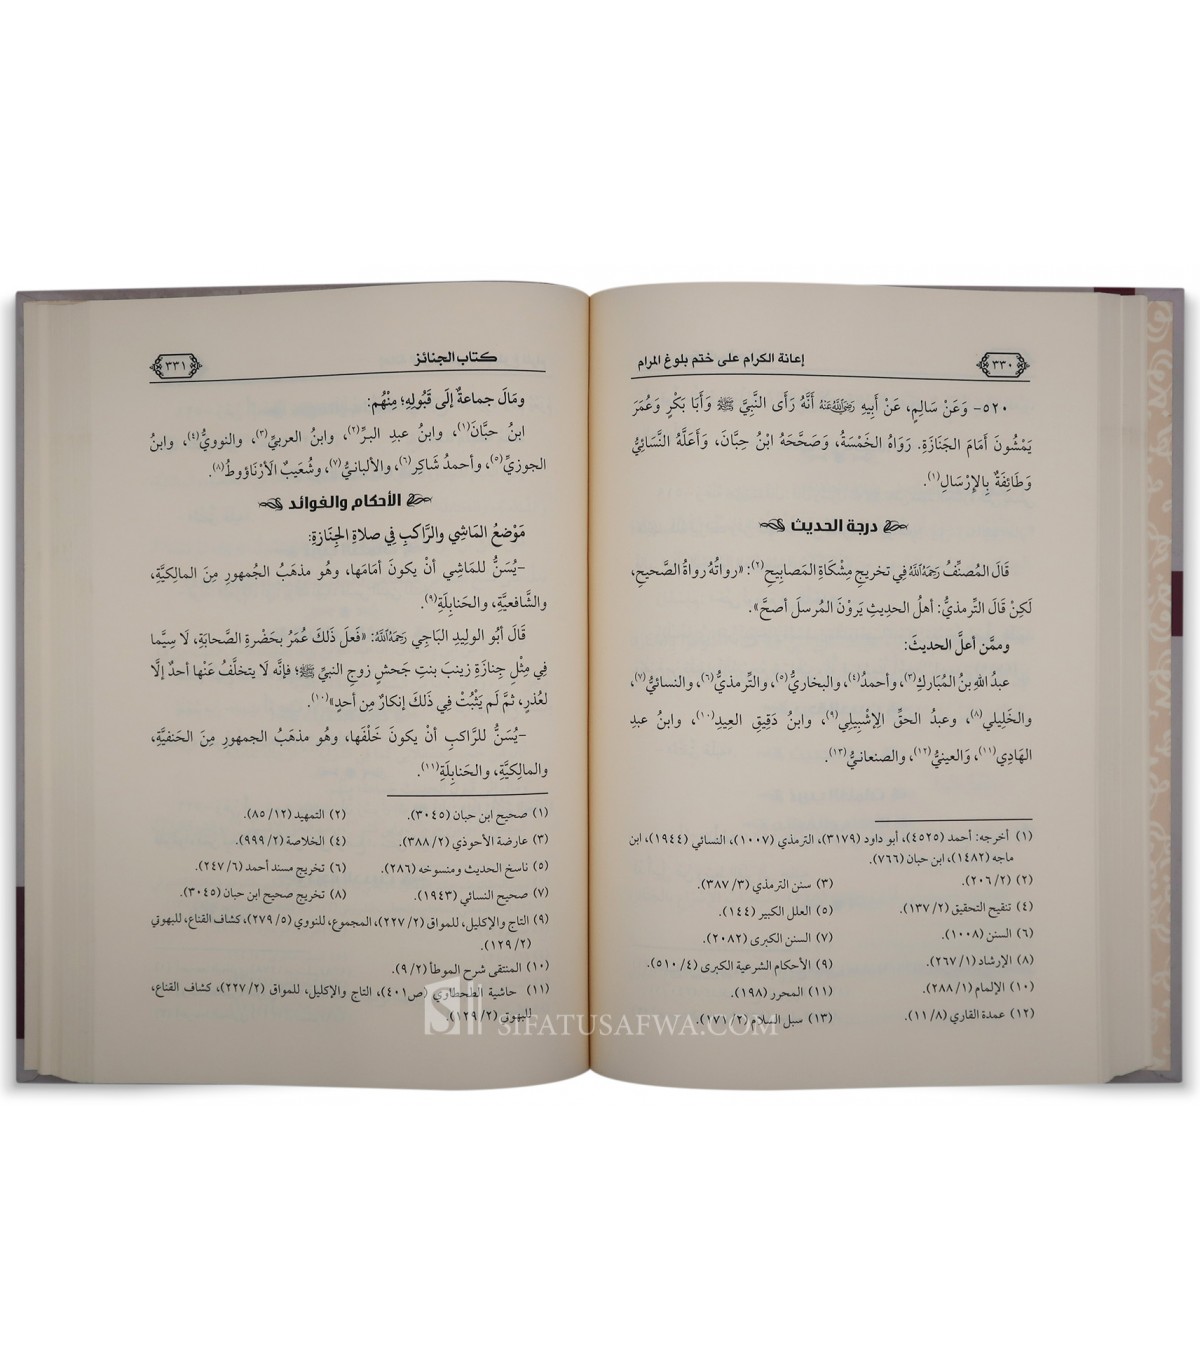 إعانة الكرام على ختم بلوغ المرام
٣٣٠
٥٢٠- وَعَنْ سَالِمٍ، عَنْ أَبِيهِ رَضِيَ اللَّهُ عَنْهُ أَنَّهُ رَأَى النَّبِيَّ ﷺ وَأَبَا بَكْرٍ وَعُمَرَ
يَمْشُونَ أَمَامَ الجَنَازَةِ. رَوَاهُ الخَمْسَةُ، وَصَحَّحَهُ ابْنُ حِبَّانَ، وَأَعَلَّهُ النَّسَائِيُّ
وَطَائِفَةٌ بِالإِرْسَالِ(١).
درجة الحديث
قَالَ المُصنِّفُ رَحِمَهُ اللَّهُ فِي تخريجِ مِشْكَاةِ المَصابِيحِ(٢): «رواتُهُ رواةُ الصَّحيحِ،
لَكِنْ قَالَ التِّرمذيُّ: أهلُ الحديثِ يَرَوْنَ المُرسلَ أصحَّ».
وممَّن أعلَّ الحديثَ:
عبدُ اللهِ بنُ المُبَاركِ(٣)، وأحمدُ(٤)، والبخاريُّ(٥)، والتِّرمذيُّ(٦)، والنسائيُّ(٧)،
والخَلِيلي(٨)، وعبدُ الحقِّ الإشْبِيلِي(٩)، وابنُ دَقِيقِ العِيدِ(١٠)، وابنُ عبدِ
الهَادِي(١١)، وَالعينيُّ(١٢)، والصنعانيُّ(١٣).
(١) أخرجه: أحمد (٤٥٢٥)، أبو داود (٣١٧٩)، الترمذي (١٠٠٧)، النسائي (١٩٤٤)، ابن
ماجه (١٤٨٢)، ابن حبان (٧٦٦).
(٢) (٢/ ٢٠٦). (٣) سنن الترمذي (٣/ ٣٨٧).
(٤) تنقيح التحقيق (٢/ ١٣٧). (٥) العلل الكبير (١٤٤).
(٦) السنن (١٠٠٨). (٧) السنن الكبرى (٢٠٨٢).
(٨) الإرشاد (١/ ٢٦٧). (٩) الأحكام الشرعية الكبرى (٤/ ٥١٠).
(١٠) الإلمام (١/ ٢٨٨). (١١) المحرر (١٩٨).
(١٢) عمدة القاري (٨/ ١١). (١٣) سبل السلام (٢/ ١٧١).
كتاب الجنائز
٣٣١
ومَالَ جماعةٌ إلَى قَبُولِهِ؛ مِنْهُم:
ابنُ حبَّانَ(١)، وابنُ عبدِ البرِّ(٢)، وابنُ العربيِّ(٣)، والنوويُّ(٤)، وابنُ
الجوزيِّ(٥)، وأحمدُ شَاكِر(٦)، والألبانيُّ(٧)، وشُعَيبٌ الأَرْنَاؤوطُ(٨).
الأحكام والفوائد
مَوْضِعُ المَاشِي والرَّاكبِ فِي صلاةِ الجِنَازةِ:
-يُسَنُّ للمَاشِي أنْ يكونَ أمَامَها، وهُو مذهَبُ الجُمهورِ مِنَ المالِكيَّةِ،
والشَّافعيَّةِ، والحَنابِلَةِ(٩).
قَالَ أبُو الوليدِ البَاجِي رَحِمَهُ اللَّهُ: «فَعلَ ذَلكَ عُمَرُ بحَضْرةِ الصَّحابَةِ، لَا سِيَّما
فِي مِثْلِ جنازةِ زينبَ بنتِ جَحشٍ زوجِ النبيِّ ﷺ؛ فإنَّه لَا يتخلَّفُ عنْها أحدٌ إلَّا
لعُذرٍ، ثمَّ لَم يَثْبُتْ فِي ذَلكَ إنكارٌ مِن أحدٍ»(١٠).
-يُسَنُّ للرَّاكبِ أنْ يكونَ خَلْفَها، وهُو مذهَبُ الجمهورِ مِنَ الحَنفيَّةِ،
والمالِكيَّةِ، والحَنابِلَةِ(١١).
(١) صحيح ابن حبان (٣٠٤٥). (٢) التمهيد (١٢/ ٨٥).
(٣) عارضة الأحوذي (٢/ ٣٨٨). (٤) الخلاصة (٢/ ٩٩٩).
(٥) ناسخ الحديث ومنسوخه (٢٨٦). (٦) تخريج مسند أحمد (٦/ ٢٤٧).
(٧) صحيح النسائي (١٩٤٣). (٨) تخريج صحيح ابن حبان (٣٠٤٥).
(٩) التاج والإكليل، للمواق (٢/ ٢٢٧)، المجموع، للنووي (٥/ ٢٧٩)، كشاف القناع، للبهوتي
(٢/ ١٢٩).
(١٠) المنتقى شرح الموطأ (٢/ ٩).
(١١) حاشية الطحطاوي (ص٤٠١)، التاج والإكليل، للمواق (٢/ ٢٢٧)، كشاف القناع،
للبهوتي (٢/ ١٢٩).
SIFATUSAFWA.COM